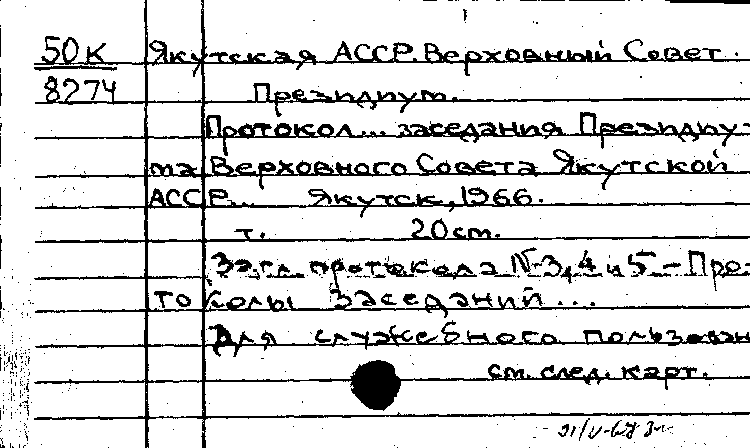 50К Якутская АССР. Верховный Совет.
8274 Президиум.
Протокол... заседания Президиу-
ма Верховного Совета Якутской
АССР... Якутск, 1966.
т. 20 cm.
Загл. протокола №3, 4 и 5 - Про-
токолы заседаний ...
Для служебного пользован
см. след. карт.